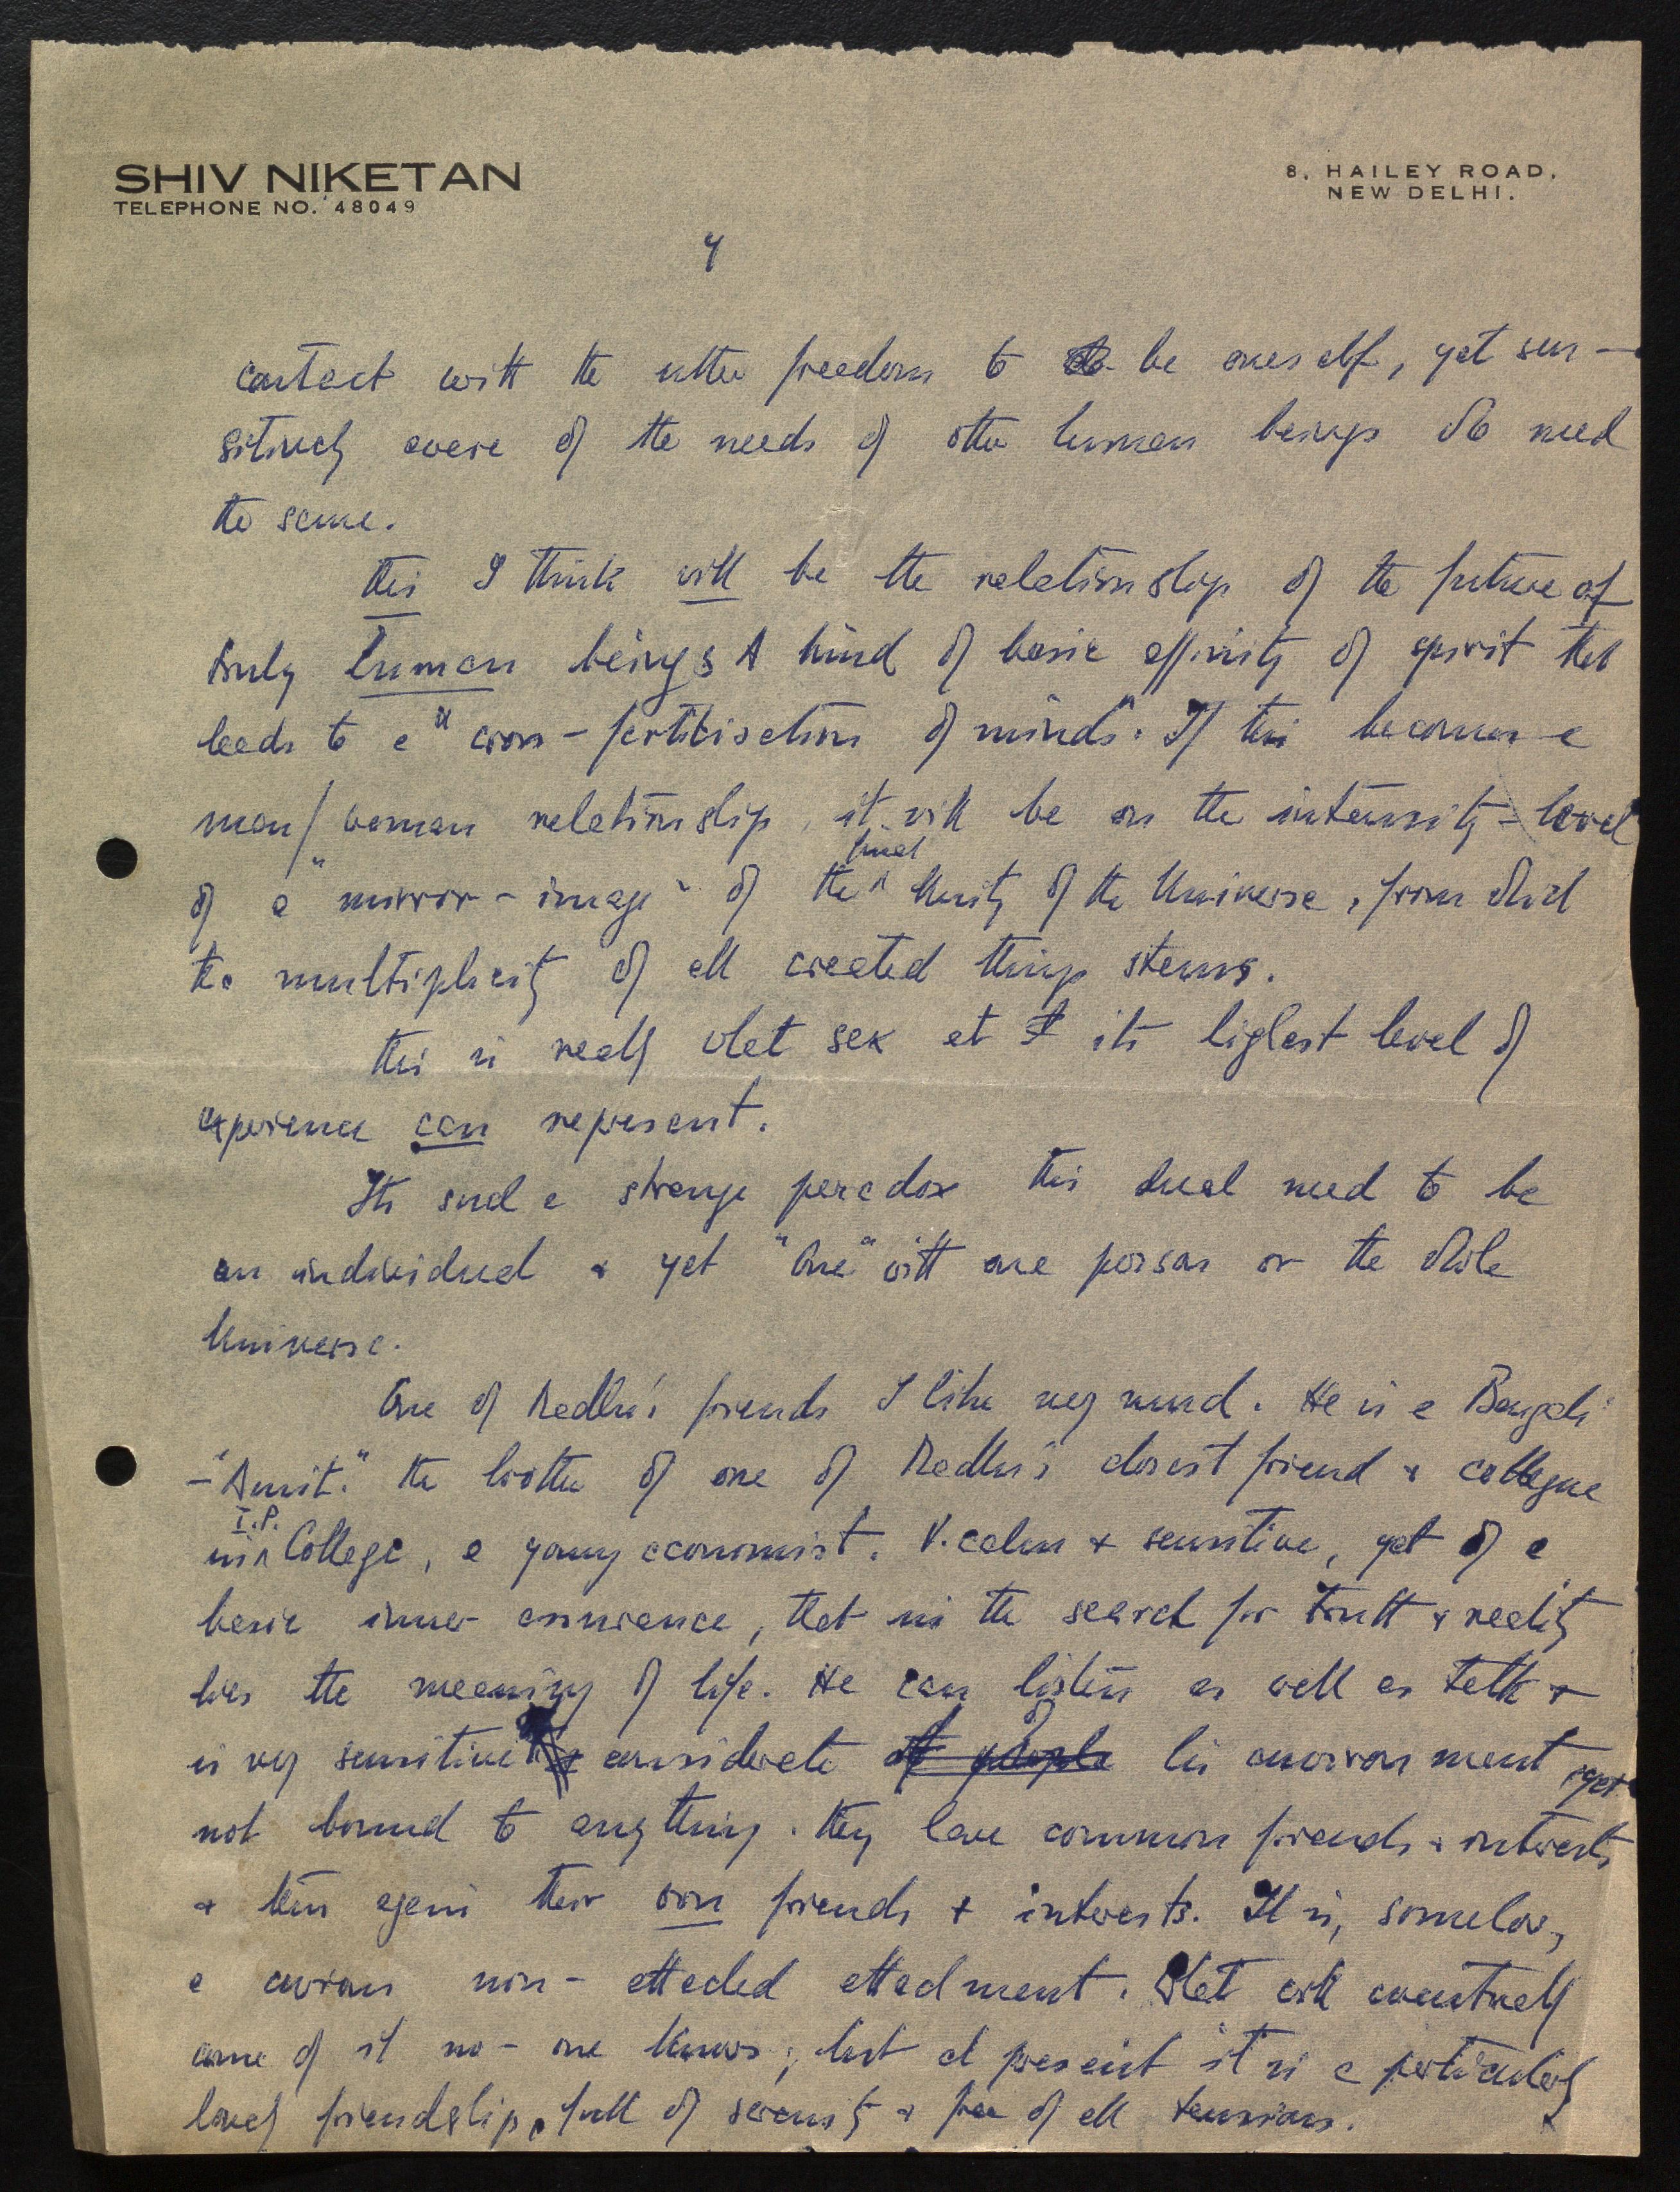 SHIV NIKETAN
TELEPHONE NO. 48049
8, HAILEY ROAD,
NEW DELHI.
4
contact with the utter freedom to be oneself, yet sen-
sitively aware of the needs of other human beings who need
the same.
This I think will be the relationship of the future of
truly human beings A kind of basic affinity of spirit that
leads to a "cross-fertilisation of minds". If this becomes a
man/woman relationship, it will be on the intensity-level
of a "mirror-image" of the final Unity of the Universe, from which
the multiplicity of all created things stems.
This is really what sex at its highest level of
experience can represent.
Its such a strange paradox this dual need to be
an individual & yet "One" with one person or the whole
Universe.
One of Radha's friends I like very much. He is a Bengali
- "Amit." the brother of one of Radha's closest friend & collegue
in I.P. College, a young economist. V. calm & sensitive, yet of a
basic inner assurance, that in the search for truth & reality
lies the meaning of life. He can listen as well as talk &
is very sensitive & considerate of his environment yet
not bound to anything. They have common friends & interests
& then again their own friends & interests. It is, somehow,
a curious non-attached attachment. What will eventually
come of it no-one knows; but at present it is a particularly
lovely friendship, full of serenity & free of all tensions.